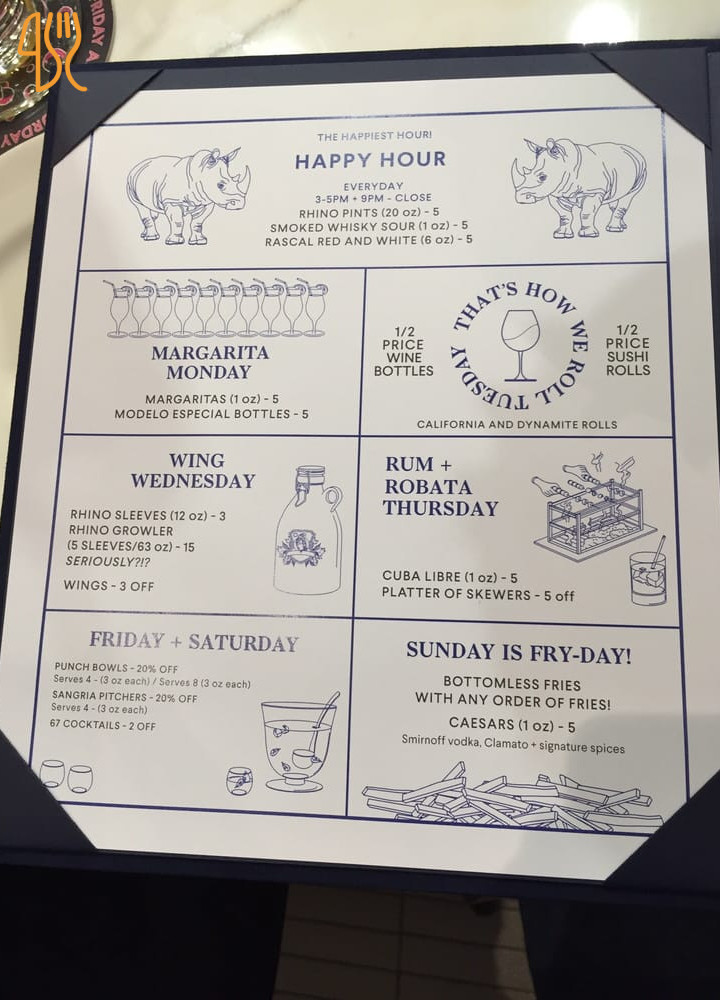 THE HAPPIEST HOUR!
HAPPY HOUR
EVERYDAY
3-5PM + 9PM - CLOSE
RHINO PINTS (20 oz) - 5
SMOKED WHISKY SOUR (1 oz) - 5
RASCAL RED AND WHITE (6 oz) - 5
MARGARITA
MONDAY
MARGARITAS (1 oz) - 5
MODELO ESPECIAL BOTTLES - 5
1/2
PRICE
WINE
BOTTLES
THAT'S HOW WE ROLL TUESDAY
1/2
PRICE
SUSHI
ROLLS
CALIFORNIA AND DYNAMITE ROLLS
WING
WEDNESDAY
RHINO SLEEVES (12 oz) - 3
RHINO GROWLER
(5 SLEEVES/63 oz) - 15
SERIOUSLY?!?
WINGS - 3 OFF
RUM +
ROBATA
THURSDAY
CUBA LIBRE (1 oz) - 5
PLATTER OF SKEWERS - 5 off
FRIDAY + SATURDAY
PUNCH BOWLS - 20% OFF
Serves 4 - (3 oz each) / Serves 8 (3 oz each)
SANGRIA PITCHERS - 20% OFF
Serves 4 - (3 oz each)
67 COCKTAILS - 2 OFF
SUNDAY IS FRY-DAY!
BOTTOMLESS FRIES
WITH ANY ORDER OF FRIES!
CAESARS (1 oz) - 5
Smirnoff vodka, Clamato + signature spices